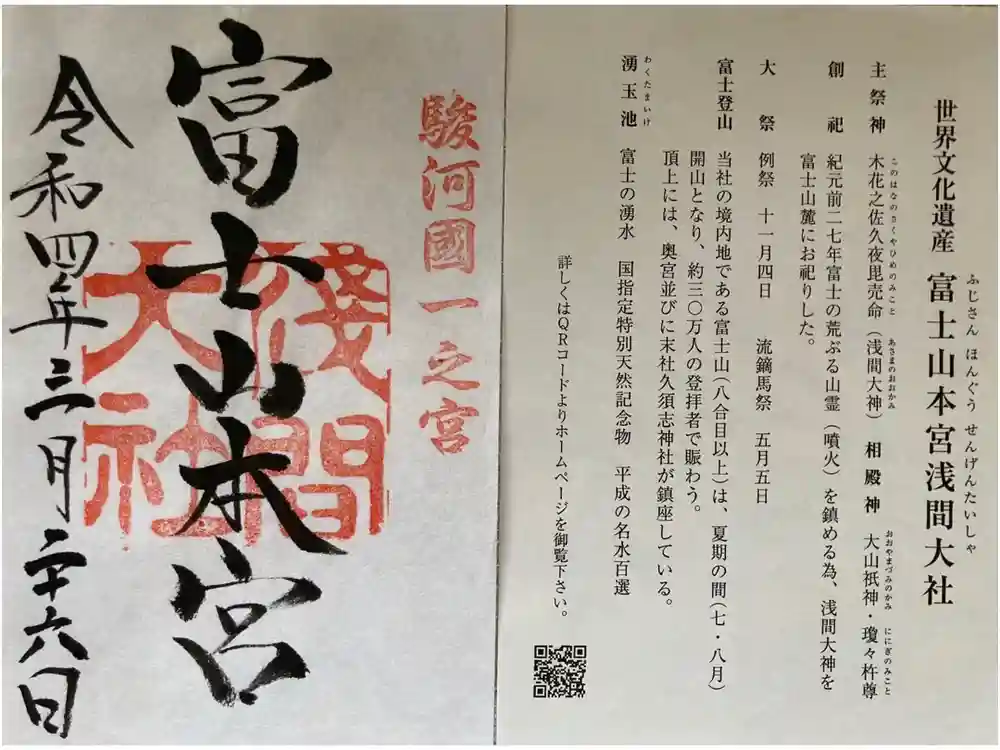 世界文化遺産 富士山本宮浅間大社
ふじさん ほんぐう せんげんたいしゃ
主祭神 木花之佐久夜毘売命（浅間大神） 相殿神 大山祇神・瓊々杵尊
このはなのさくやひめのみこと あさまのおおかみ おおやまづみのかみ ににぎのみこと
創祀 紀元前二七年富士の荒ぶる山霊（噴火）を鎮める為、浅間大神を
富士山麓にお祀りした。
大祭 例祭 十一月四日 流鏑馬祭 五月五日
富士登山 当社の境内地である富士山（八合目以上）は、夏期の間（七・八月）
開山となり、約三〇万人の登拝者で賑わう。
頂上には、奥宮並びに末社久須志神社が鎮座している。
湧玉池 富士の湧水 国指定特別天然記念物 平成の名水百選
わくたまいけ
詳しくはQRコードよりホームページを御覧下さい。
駿河國一之宮
富士山本宮
淺間大社
令和四年三月二十六日